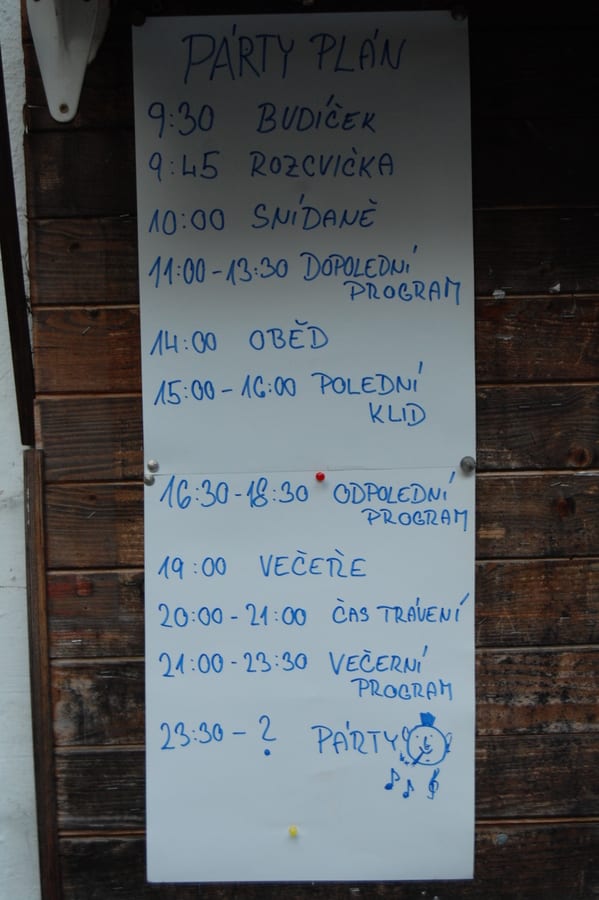 PÁRTY PLÁN
9:30 BUDÍČEK
9:45 ROZCVIČKA
10:00 SNÍDANĚ
11:00-13:30 DOPOLEDNÍ
PROGRAM
14:00 OBĚD
15:00-16:00 POLEDNÍ
KLID
16:30-18:30 ODPOLEDNÍ
PROGRAM
19:00 VEČEŘE
20:00-21:00 ČAS TRÁVENÍ
21:00-23:30 VEČERNÍ
PROGRAM
23:30-? PÁRTY